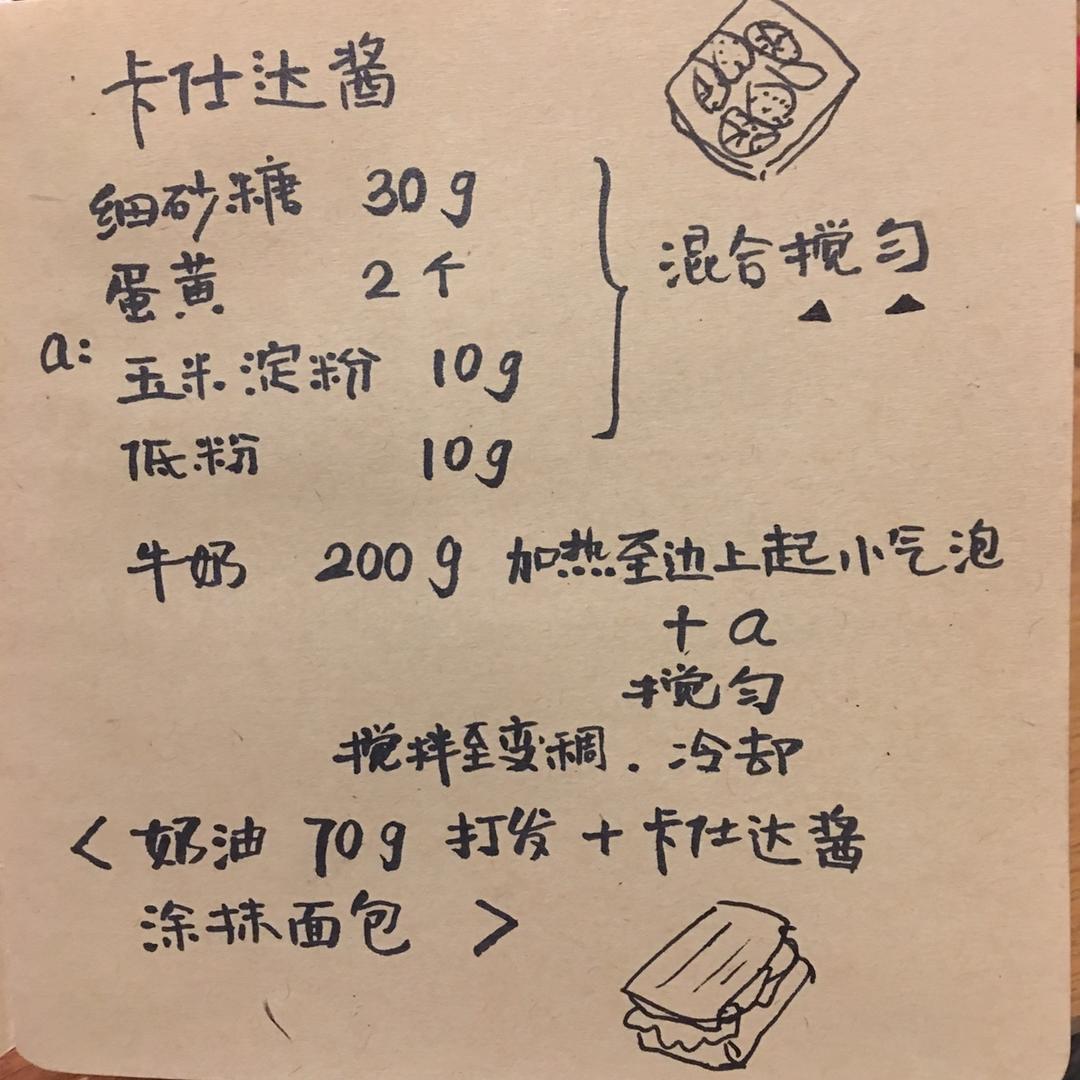 卡仕达酱
细砂糖 30g
蛋黄 2个
混合搅匀
a:
玉米淀粉 10g
低粉 10g
牛奶 200g 加热至边上起小气泡
+ a
搅匀
搅拌至变稠.冷却
<奶油 70g 打发+卡仕达酱
涂抹面包 >